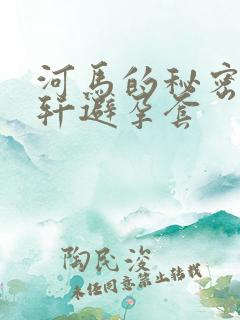 河马的秘密
轩避孕套
陶民浚
未经同意禁止转载